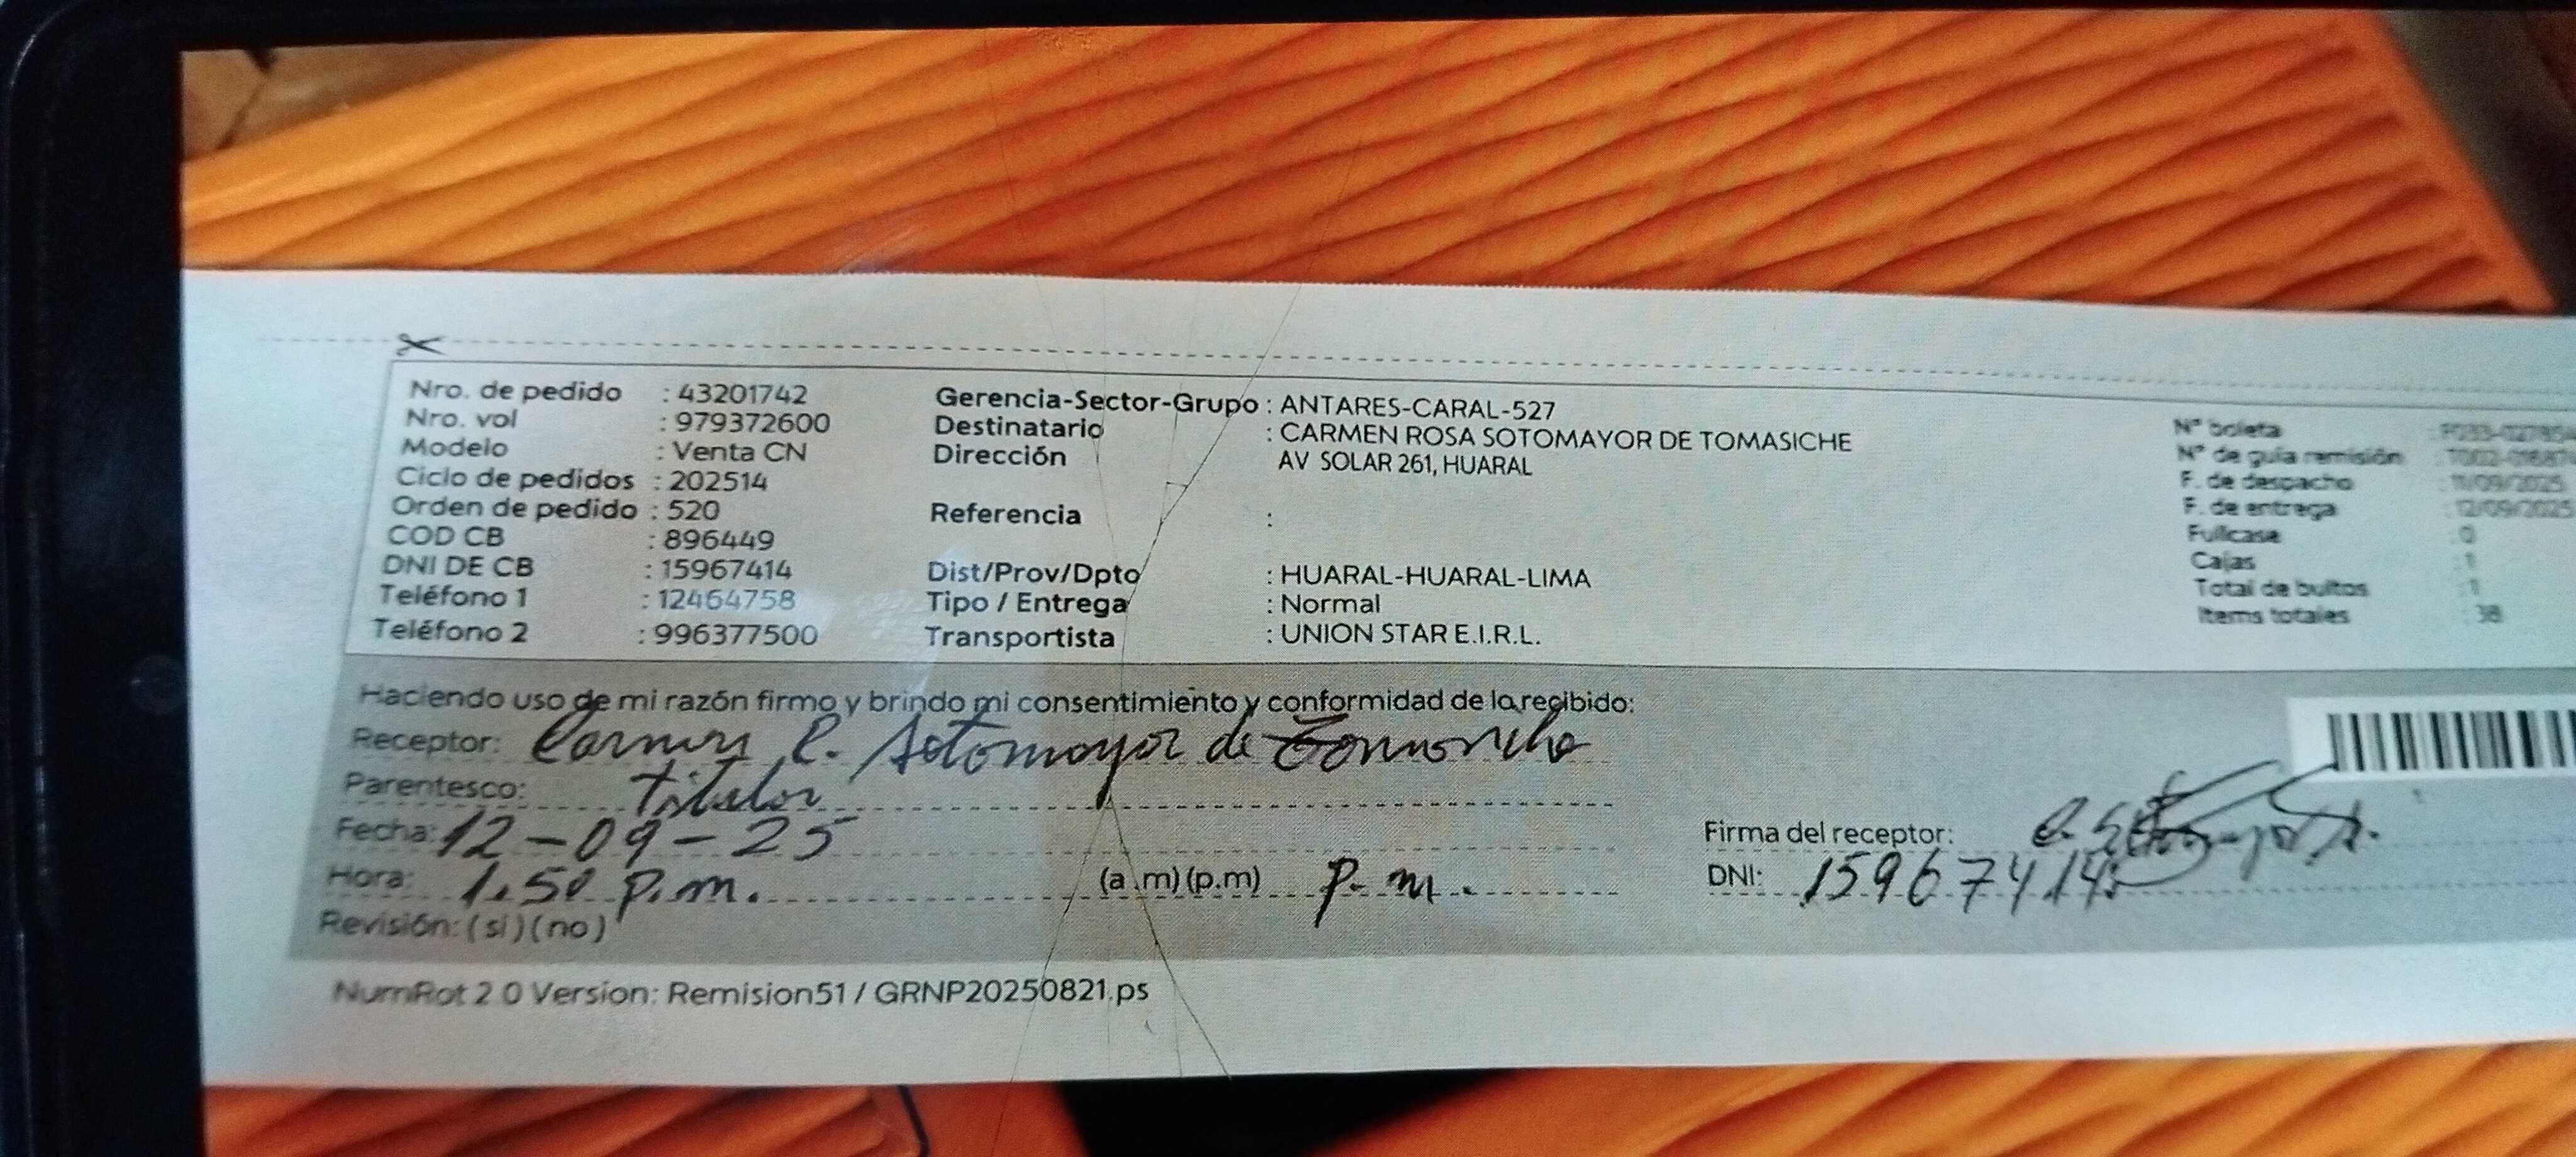 Nro. de pedido : 43201742
Nro. vol : 979372600
Modelo : Venta CN
Ciclo de pedidos : 202514
Orden de pedido : 520
COD CB : 896449
DNI DE CB : 15967414
Teléfono 1 : 12464758
Teléfono 2 : 996377500
Gerencia-Sector-Grupo : ANTARES-CARAL-527
Destinatario : CARMEN ROSA SOTOMAYOR DE TOMASICHE
Dirección AV SOLAR 261, HUARAL
Referencia :
Dist/Prov/Dpto : HUARAL-HUARAL-LIMA
Tipo / Entrega : Normal
Transportista : UNION STAR E.I.R.L.
N° boleta
N° de guía remisión
F. de despacho : 11/09/2025
F. de entrega : 12/09/2025
Fullcase : 0
Cajas : 1
Total de bultos : 1
Items totales : 38
Haciendo uso de mi razón firmo y brindo mi consentimiento y conformidad de lo recibido:
Receptor: Carmen R. Sotomayor de Tomasiche
Parentesco: Titular
Fecha: 12-09-25
Hora: 1.50 p.m. (a.m)(p.m) p.m.
Revisión: (si)(no)
Firma del receptor:
DNI: 15967414
NumRot 2.0 Version: Remision51 / GRNP20250821.ps